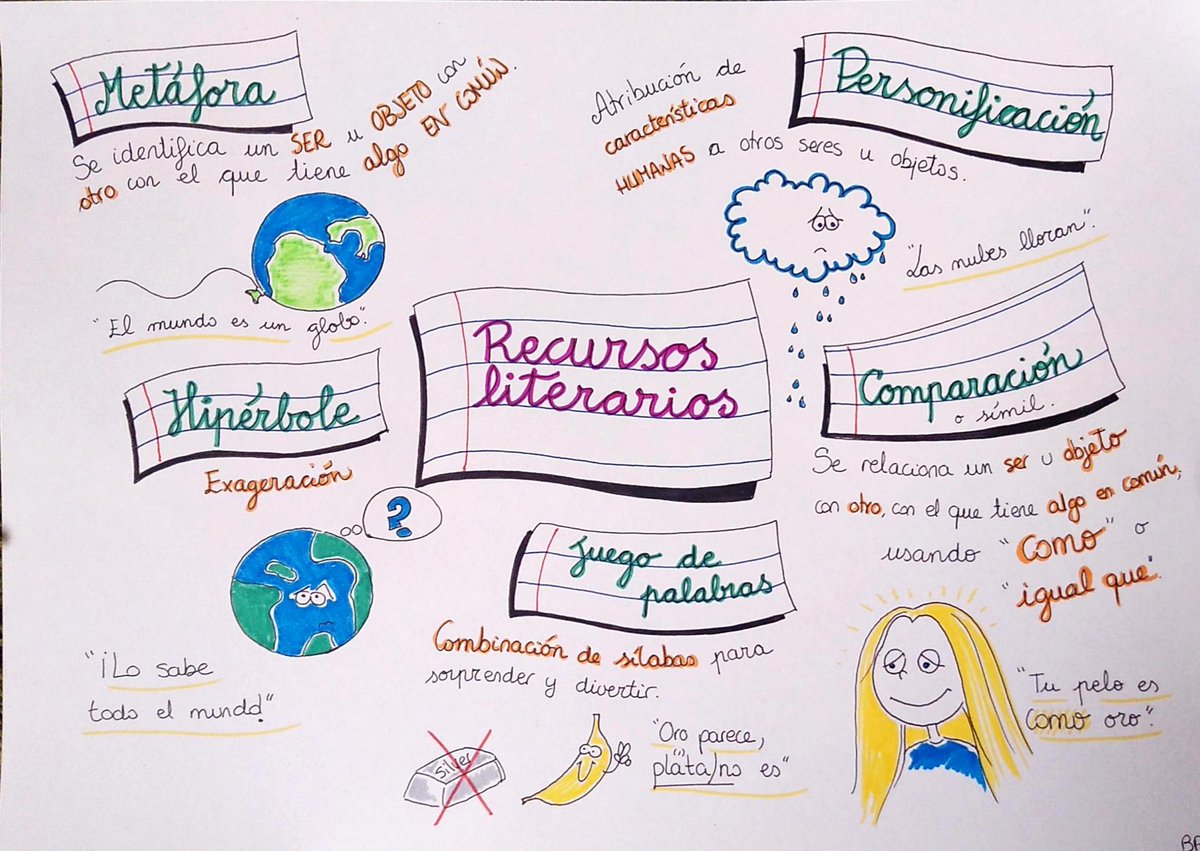 Metáfora
Se identifica un SER u OBJETO con
otro con el que tiene algo EN COMÚN.
"El mundo es un globo".
Personificación
Atribución de
características
HUMANAS a otros seres u objetos.
"Las nubes lloran".
Recursos
literarios
Hipérbole
Exageración
?
"¡Lo sabe
todo el mundo!"
Comparación
o símil.
Se relaciona un ser u objeto
con otro, con el que tiene algo en común,
usando "COMO" o
"igual que".
"Tu pelo es
como oro".
Juego de
palabras
Combinación de sílabas para
sorprender y divertir.
Silver
"Oro parece,
plata/no es"